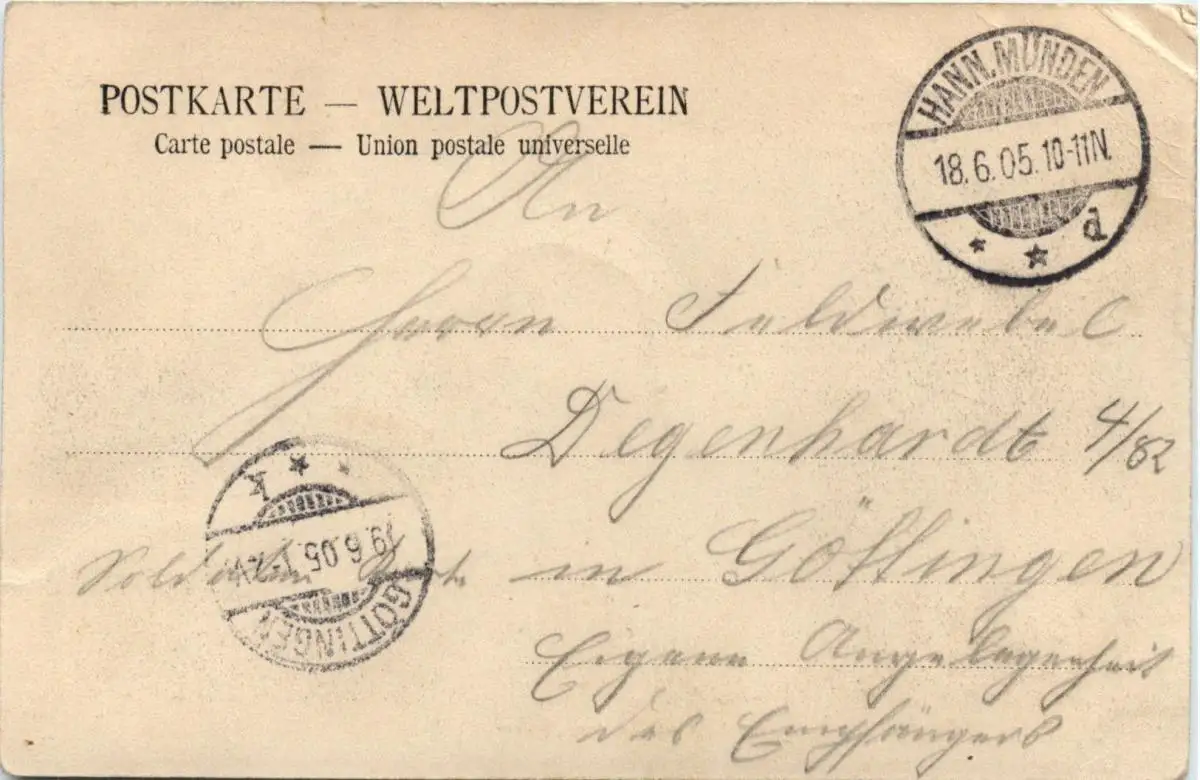 POSTKARTE — WELTPOSTVEREIN
Carte postale — Union postale universelle
HANN. MÜNDEN
18.6.05. 10-11N.
* * d
An
Herrn Feldwebel
Degenhardt 4/82
k * *
19.6.05. 1-2V
GÖTTINGEN
Soldaten Karte in Göttingen
Eigene Angelegenheit
des Empfängers